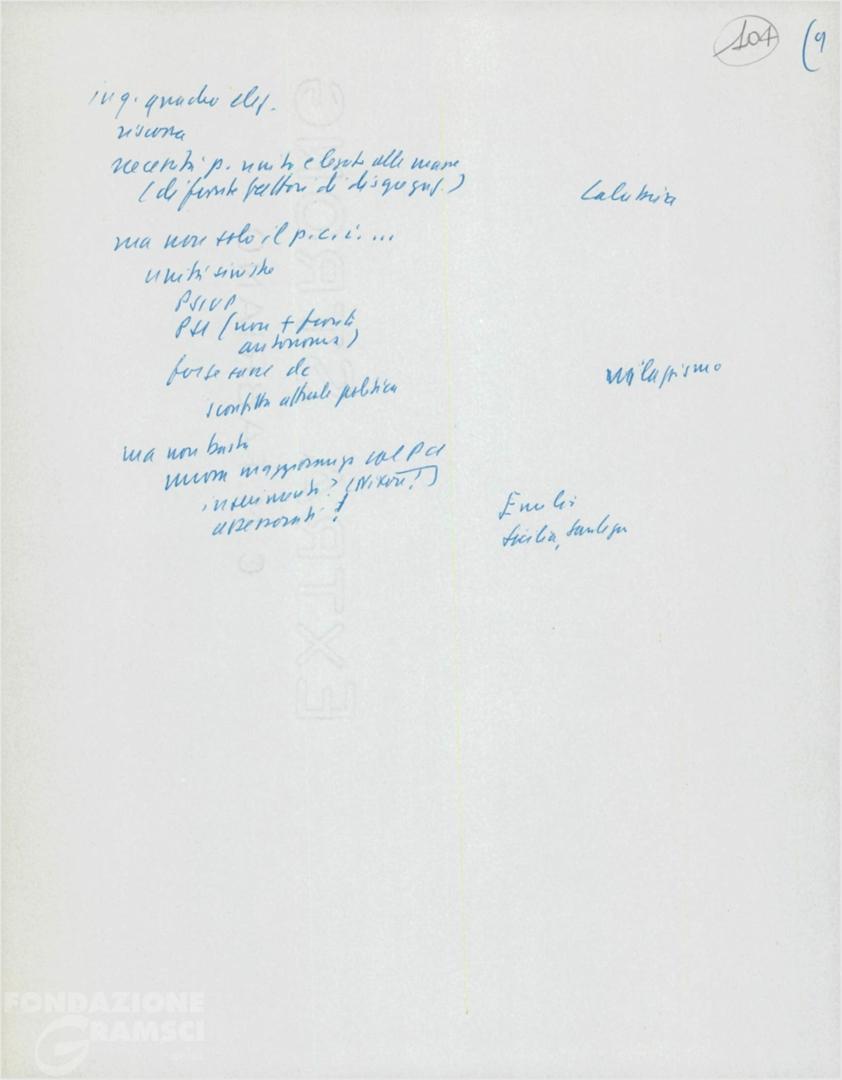 104 (9
in q. quadro eleg.
riscossa
necessità p. unito e legato alle masse
(di fronte fattori di disgregaz.)
Calabria
ma non solo il p.c.i. ...
unità sinistre
PSIUP
PSI (non + fronte
autonomia)
forze sane dc
sconfitta attuale politica
milazzismo
ma non basta
nuova maggioranza col PCI
inserimento? (Nixon!)
assessorati?
Emilia
Sicilia, Sardegna
EXTRA STRONG
FONDAZIONE
GRAMSCI